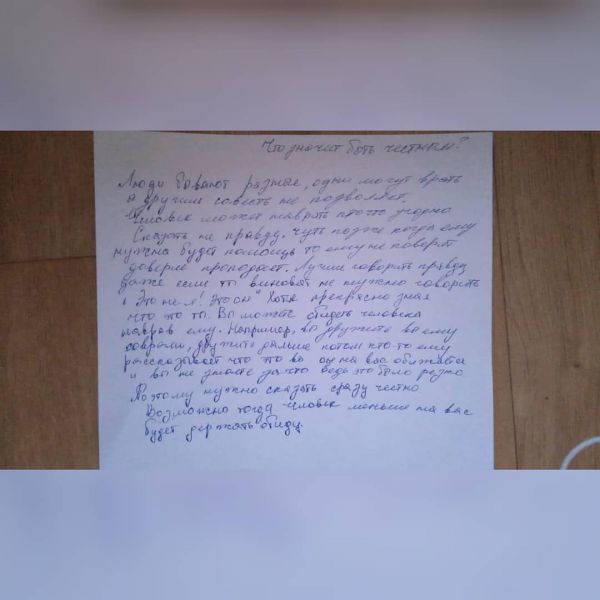 Что значит быть честным?
Люди бывают разные, одни могут врать
а другим совесть не позволяет.
Человек может наврать что-то угодно
Сказать не правду, чуть позже когда ему
нужна будет помощь то ему не поверят
доверие пропадает. Лучше говорить правду
даже если ты виноват не нужно говорить
"Это не я! Это он" Хотя прекрасно зная
что это ты. Вы можете обидеть человека
наврав ему. Например, вы дружите вы ему
соврали, дружите дальше потом кто-то ему
рассказывает что это вы он на вас обижается
и вы не знаете за что ведь это было
Поэтому нужно сказать сразу честно
Возможно тогда человек меньше на вас
будет держать обиду.